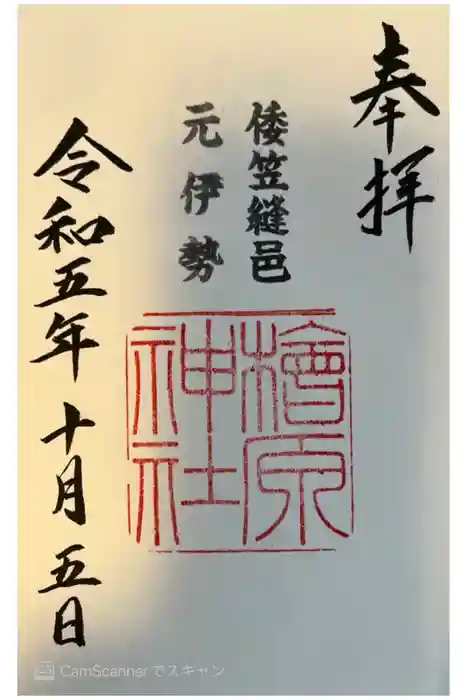 奉拝
倭笠縫邑
元伊勢
檜原
神社
令和五年十月五日
CamScannerでスキャン